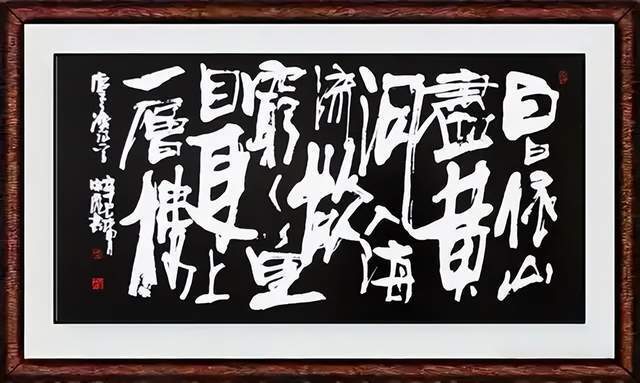 白日依山
盡黃
河入海
流欲
窮千里
目更上
一層樓